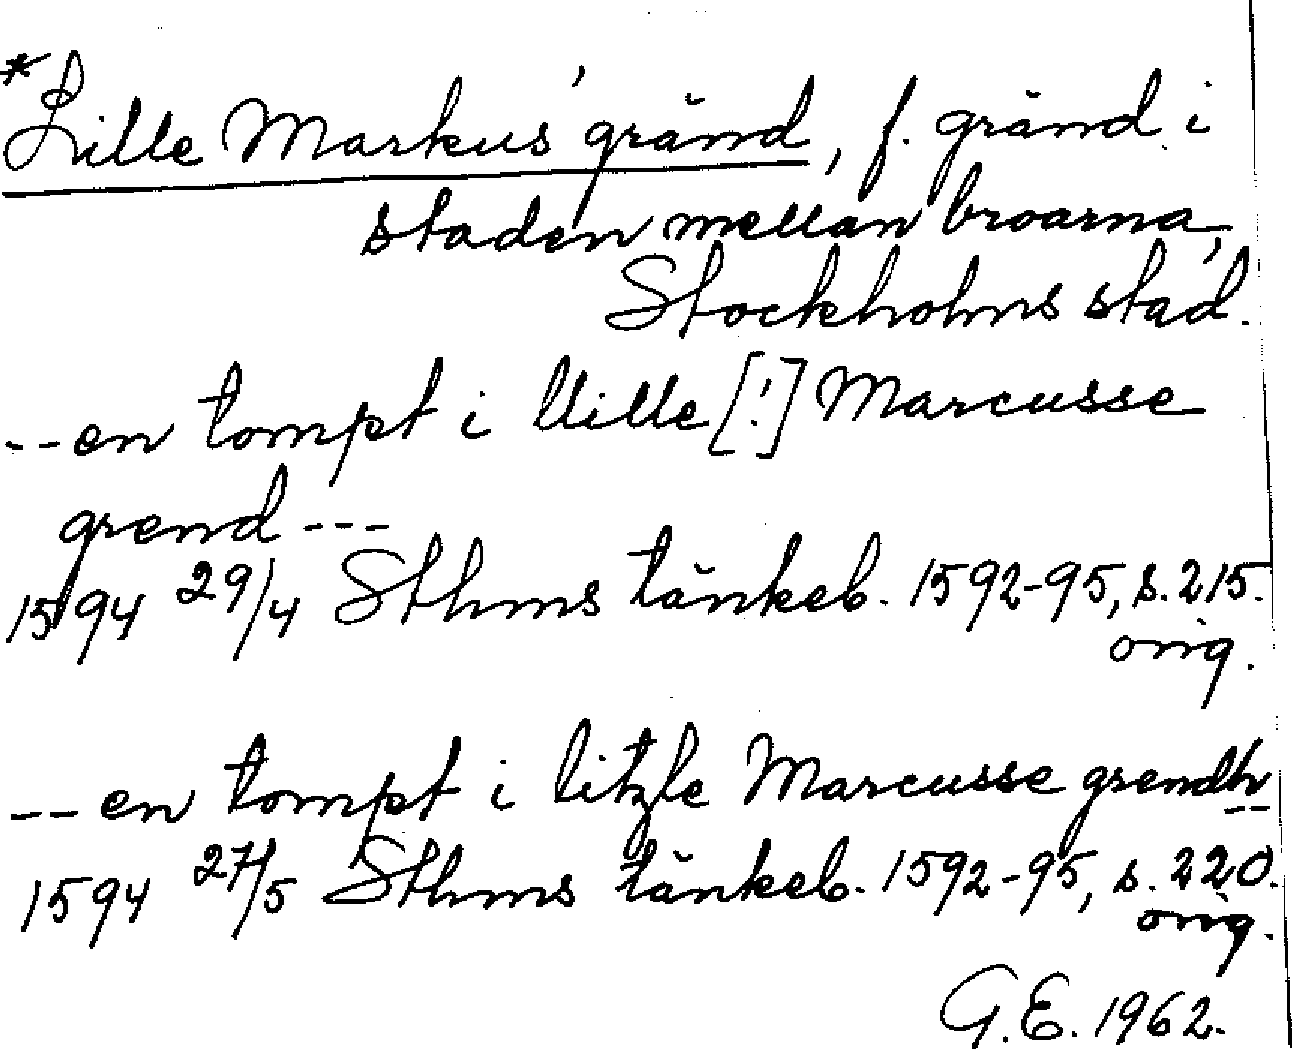 *Lille Markus' gränd, f. gränd i
staden mellan broarna,
Stockholms stad.
--en tompt i llille [!] Marcusse
grend---
1594 29/4 Sthms tänkeb. 1592-95, s. 215.
orig.
--en tompt i litzle Marcusse grendh--
1594 27/5 Sthms tänkeb. 1592-95, s. 220.
orig.
G.E. 1962.